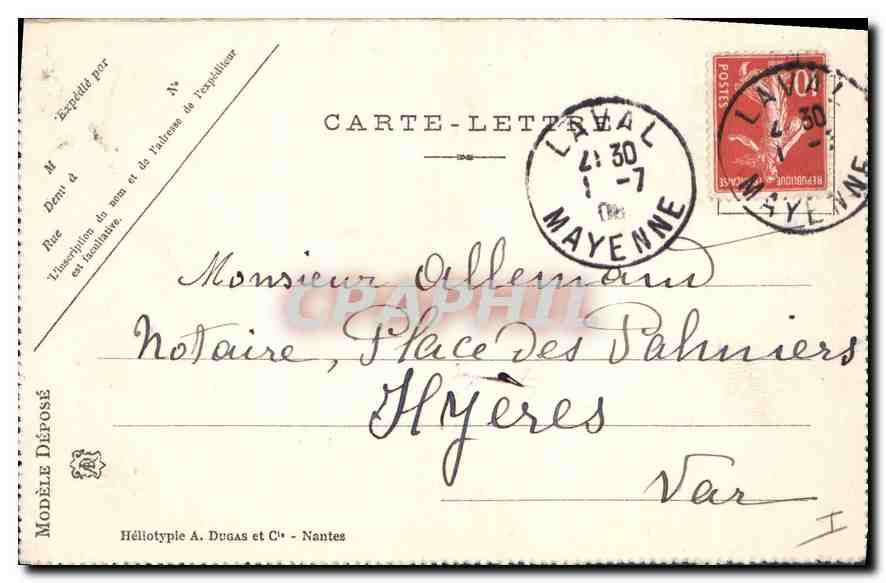 Expédié par
M
Nº
Demt à
Rue
L'inscription du nom et de l'adresse de l'expéditeur
est facultative.
CARTE-LETTRE
LAVAL
30
1 -7
08
MAYENNE
10
POSTES
REPUBLIQUE
LAVAL
30
MAYENNE
Monsieur Allemand
CPAPHIL
Notaire, Place des Palmiers
Hyères
Var
MODÈLE DÉPOSÉ
Héliotypie A. DUGAS et Cie - Nantes
I